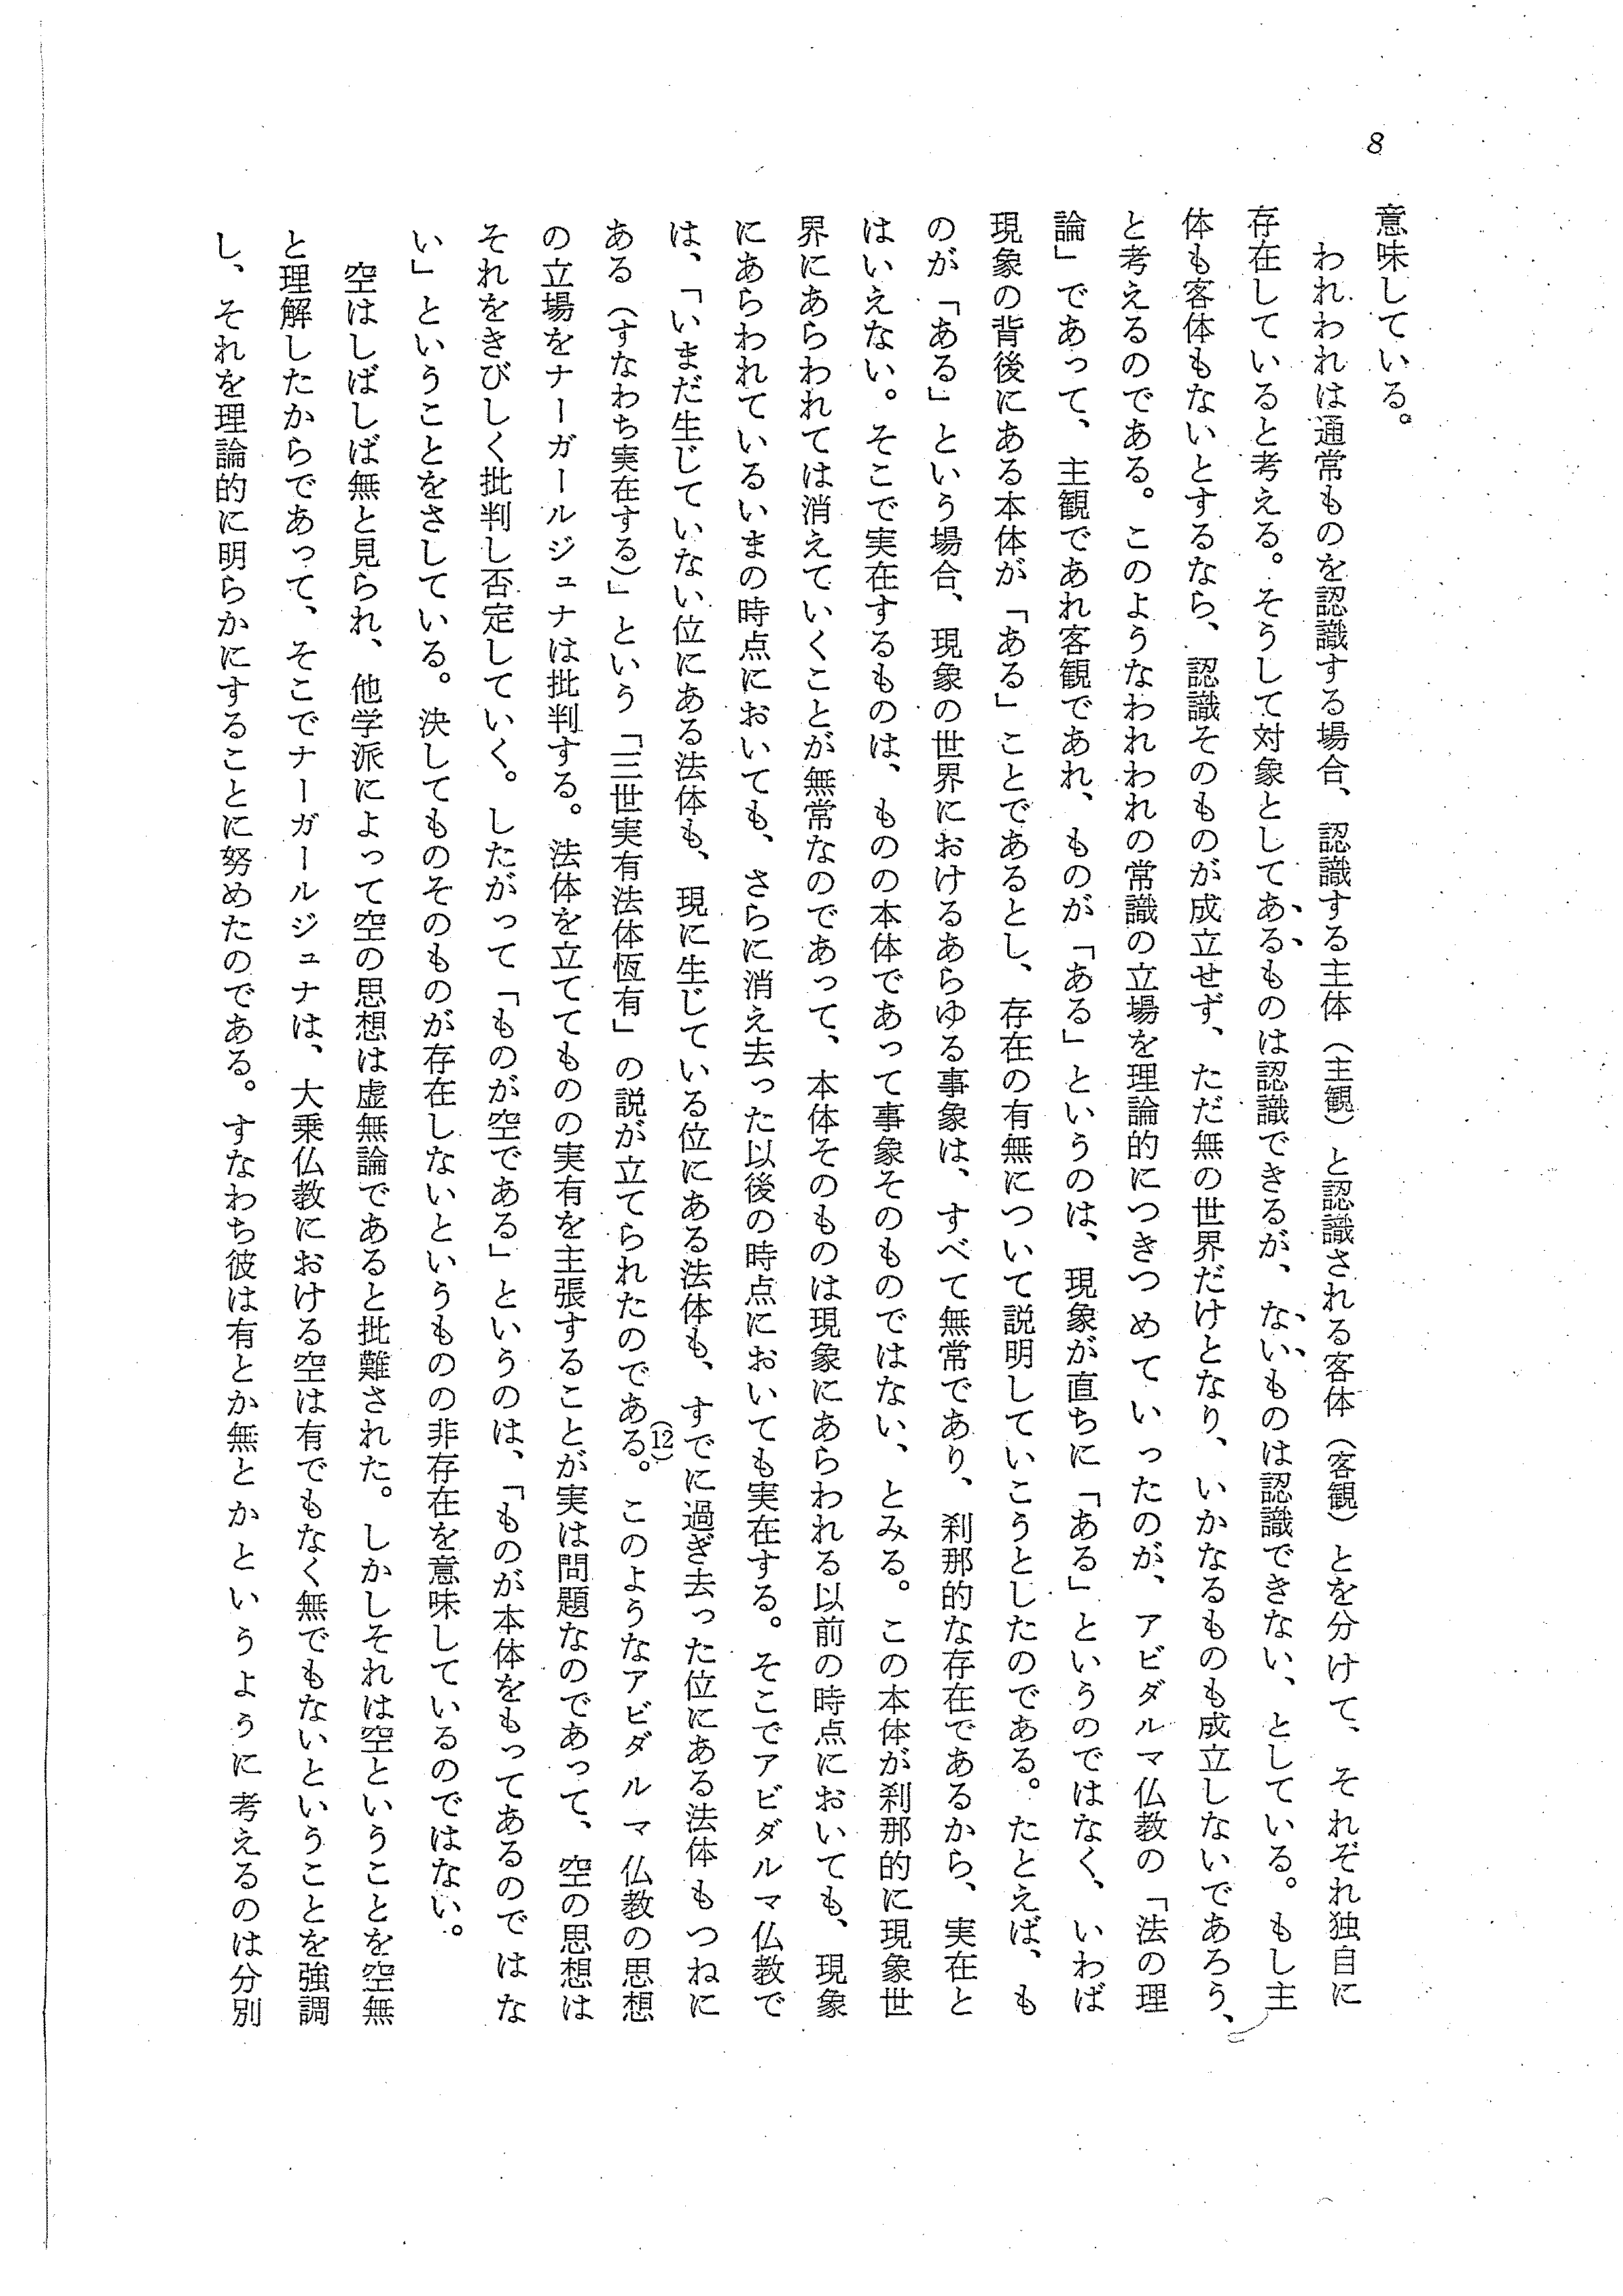 8
意味している。
われわれは通常ものを認識する場合、認識する主体（主観）と認識される客体（客観）とを分けて、それぞれ独自に
存在していると考える。そうして対象としてあるものは認識できるが、ないものは認識できない、としている。もし主
体も客体もないとするなら、認識そのものが成立せず、ただ無の世界だけとなり、いかなるものも成立しないであろう、
と考えるのである。このようなわれわれの常識の立場を理論的につきつめていったのが、アビダルマ仏教の「法の理
論」であって、主観であれ客観であれ、ものが「ある」というのは、現象が直ちに「ある」というのではなく、いわば
現象の背後にある本体が「ある」ことであるとし、存在の有無について説明していこうとしたのである。たとえば、も
のが「ある」という場合、現象の世界におけるあらゆる事象は、すべて無常であり、刹那的な存在であるから、実在と
はいえない。そこで実在するものは、ものの本体であって事象そのものではない、とみる。この本体が刹那的に現象世
界にあらわれては消えていくことが無常なのであって、本体そのものは現象にあらわれる以前の時点においても、現象
にあらわれているいまの時点においても、さらに消え去った以後の時点においても実在する。そこでアビダルマ仏教で
は、「いまだ生じていない位にある法体も、現に生じている位にある法体も、すでに過ぎ去った位にある法体もつねに
ある（すなわち実在する）」という「三世実有法体恆有」の説が立てられたのである。(12)このようなアビダルマ仏教の思想
の立場をナーガールジュナは批判する。法体を立ててものの実有を主張することが実は問題なのであって、空の思想は
それをきびしく批判し否定していく。したがって「ものが空である」というのは、「ものが本体をもってあるのではな
い」ということをさしている。決してものそのものが存在しないというものの非存在を意味しているのではない。
空はしばしば無と見られ、他学派によって空の思想は虚無論であると批難された。しかしそれは空ということを空無
と理解したからであって、そこでナーガールジュナは、大乗仏教における空は有でもなく無でもないということを強調
し、それを理論的に明らかにすることに努めたのである。すなわち彼は有とか無とかというように考えるのは分別